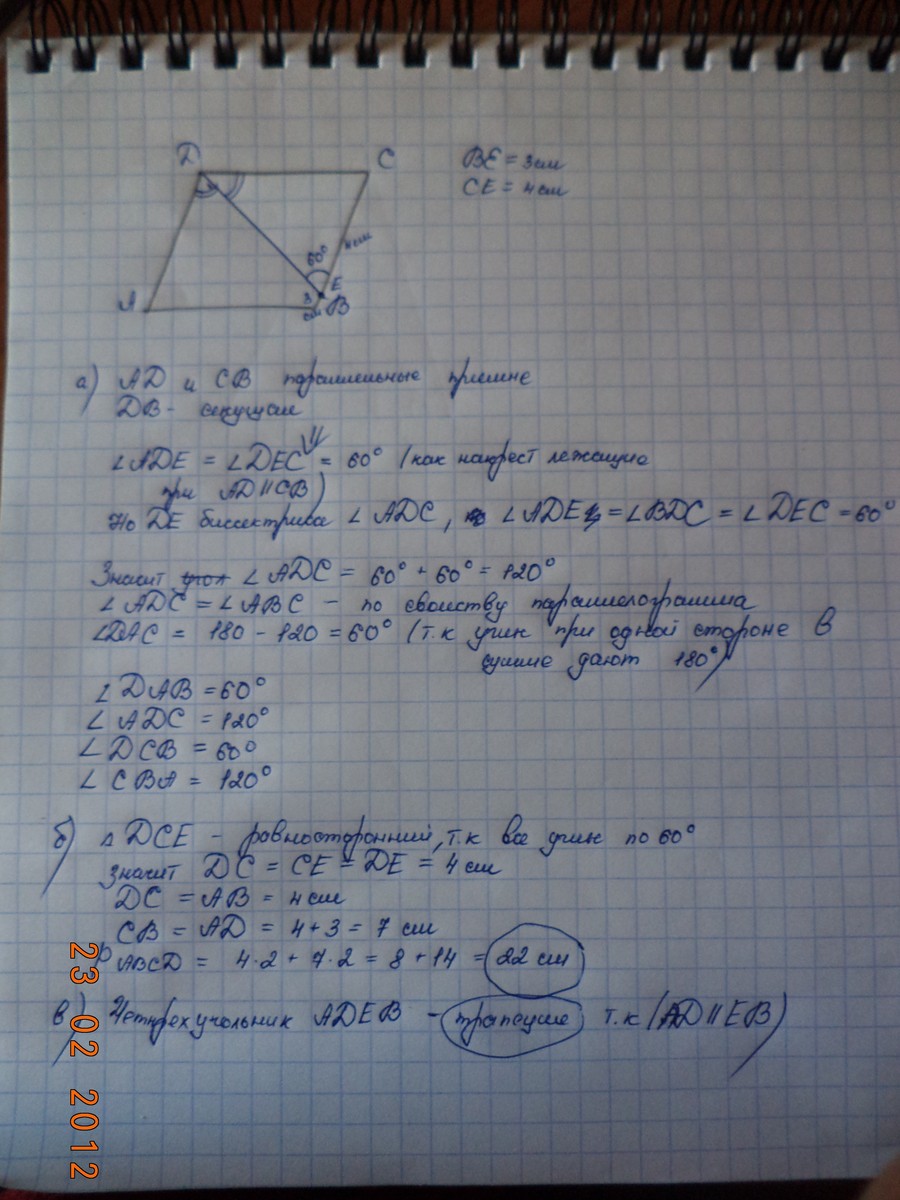 D
C
BE = 3см
CE = 4см
60°
4см
E
A
3
см
B
а) AD и CB параллельные прямые
DB - секущая
∠ADE = ∠DEC = 60° (как накрест лежащие
при AD || CB)
Но DE биссектриса ∠ADC, ∠ADE = ∠BDC = ∠DEC = 60°
Значит ∠ADC = 60° + 60° = 120°
∠ADC = ∠ABC - по свойству параллелограмма
∠DAC = 180 - 120 = 60° (т.к углы при одной стороне в
сумме дают 180°)
∠DAB = 60°
∠ADC = 120°
∠DCB = 60°
∠CBA = 120°
б) △DCE - равносторонний, т.к все углы по 60°
Значит DC = CE = DE = 4 см
DC = AB = 4см
CB = AD = 4+3 = 7 см
P ABCD = 4·2 + 7·2 = 8 + 14 = 22 см
в) Четырехугольник ADEB - трапеция т.к (AD || EB)
23 02 2012